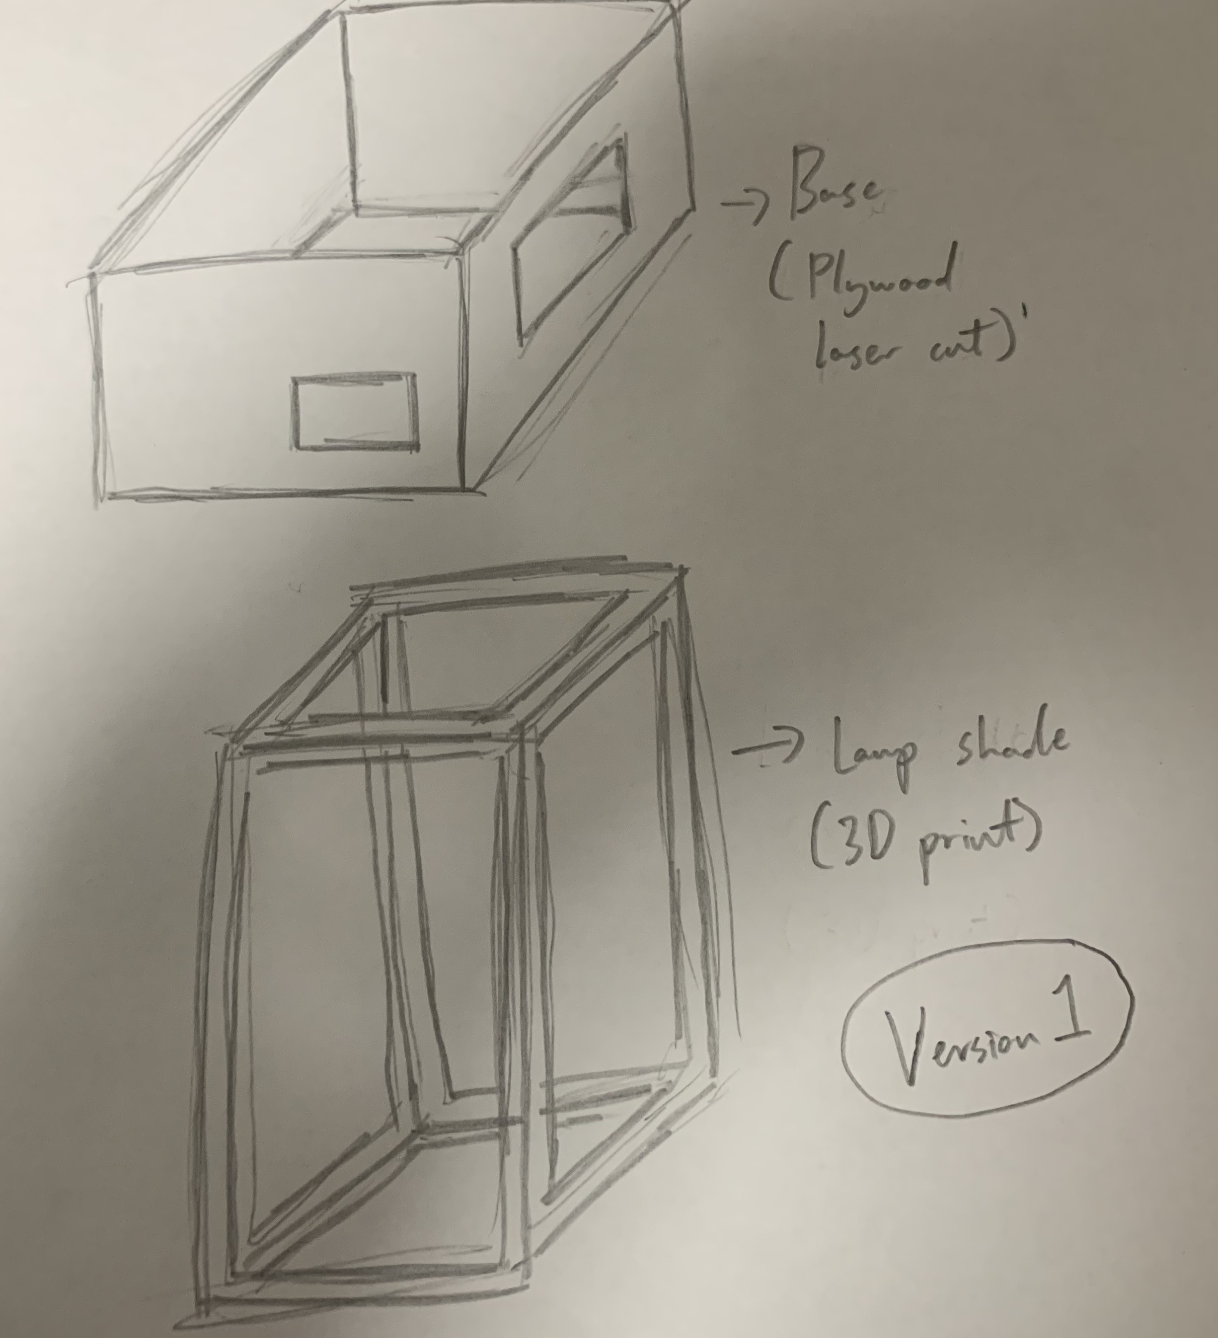 → Base
(Plywood
laser cut)
→ Lamp shade
(3D print)
Version 1